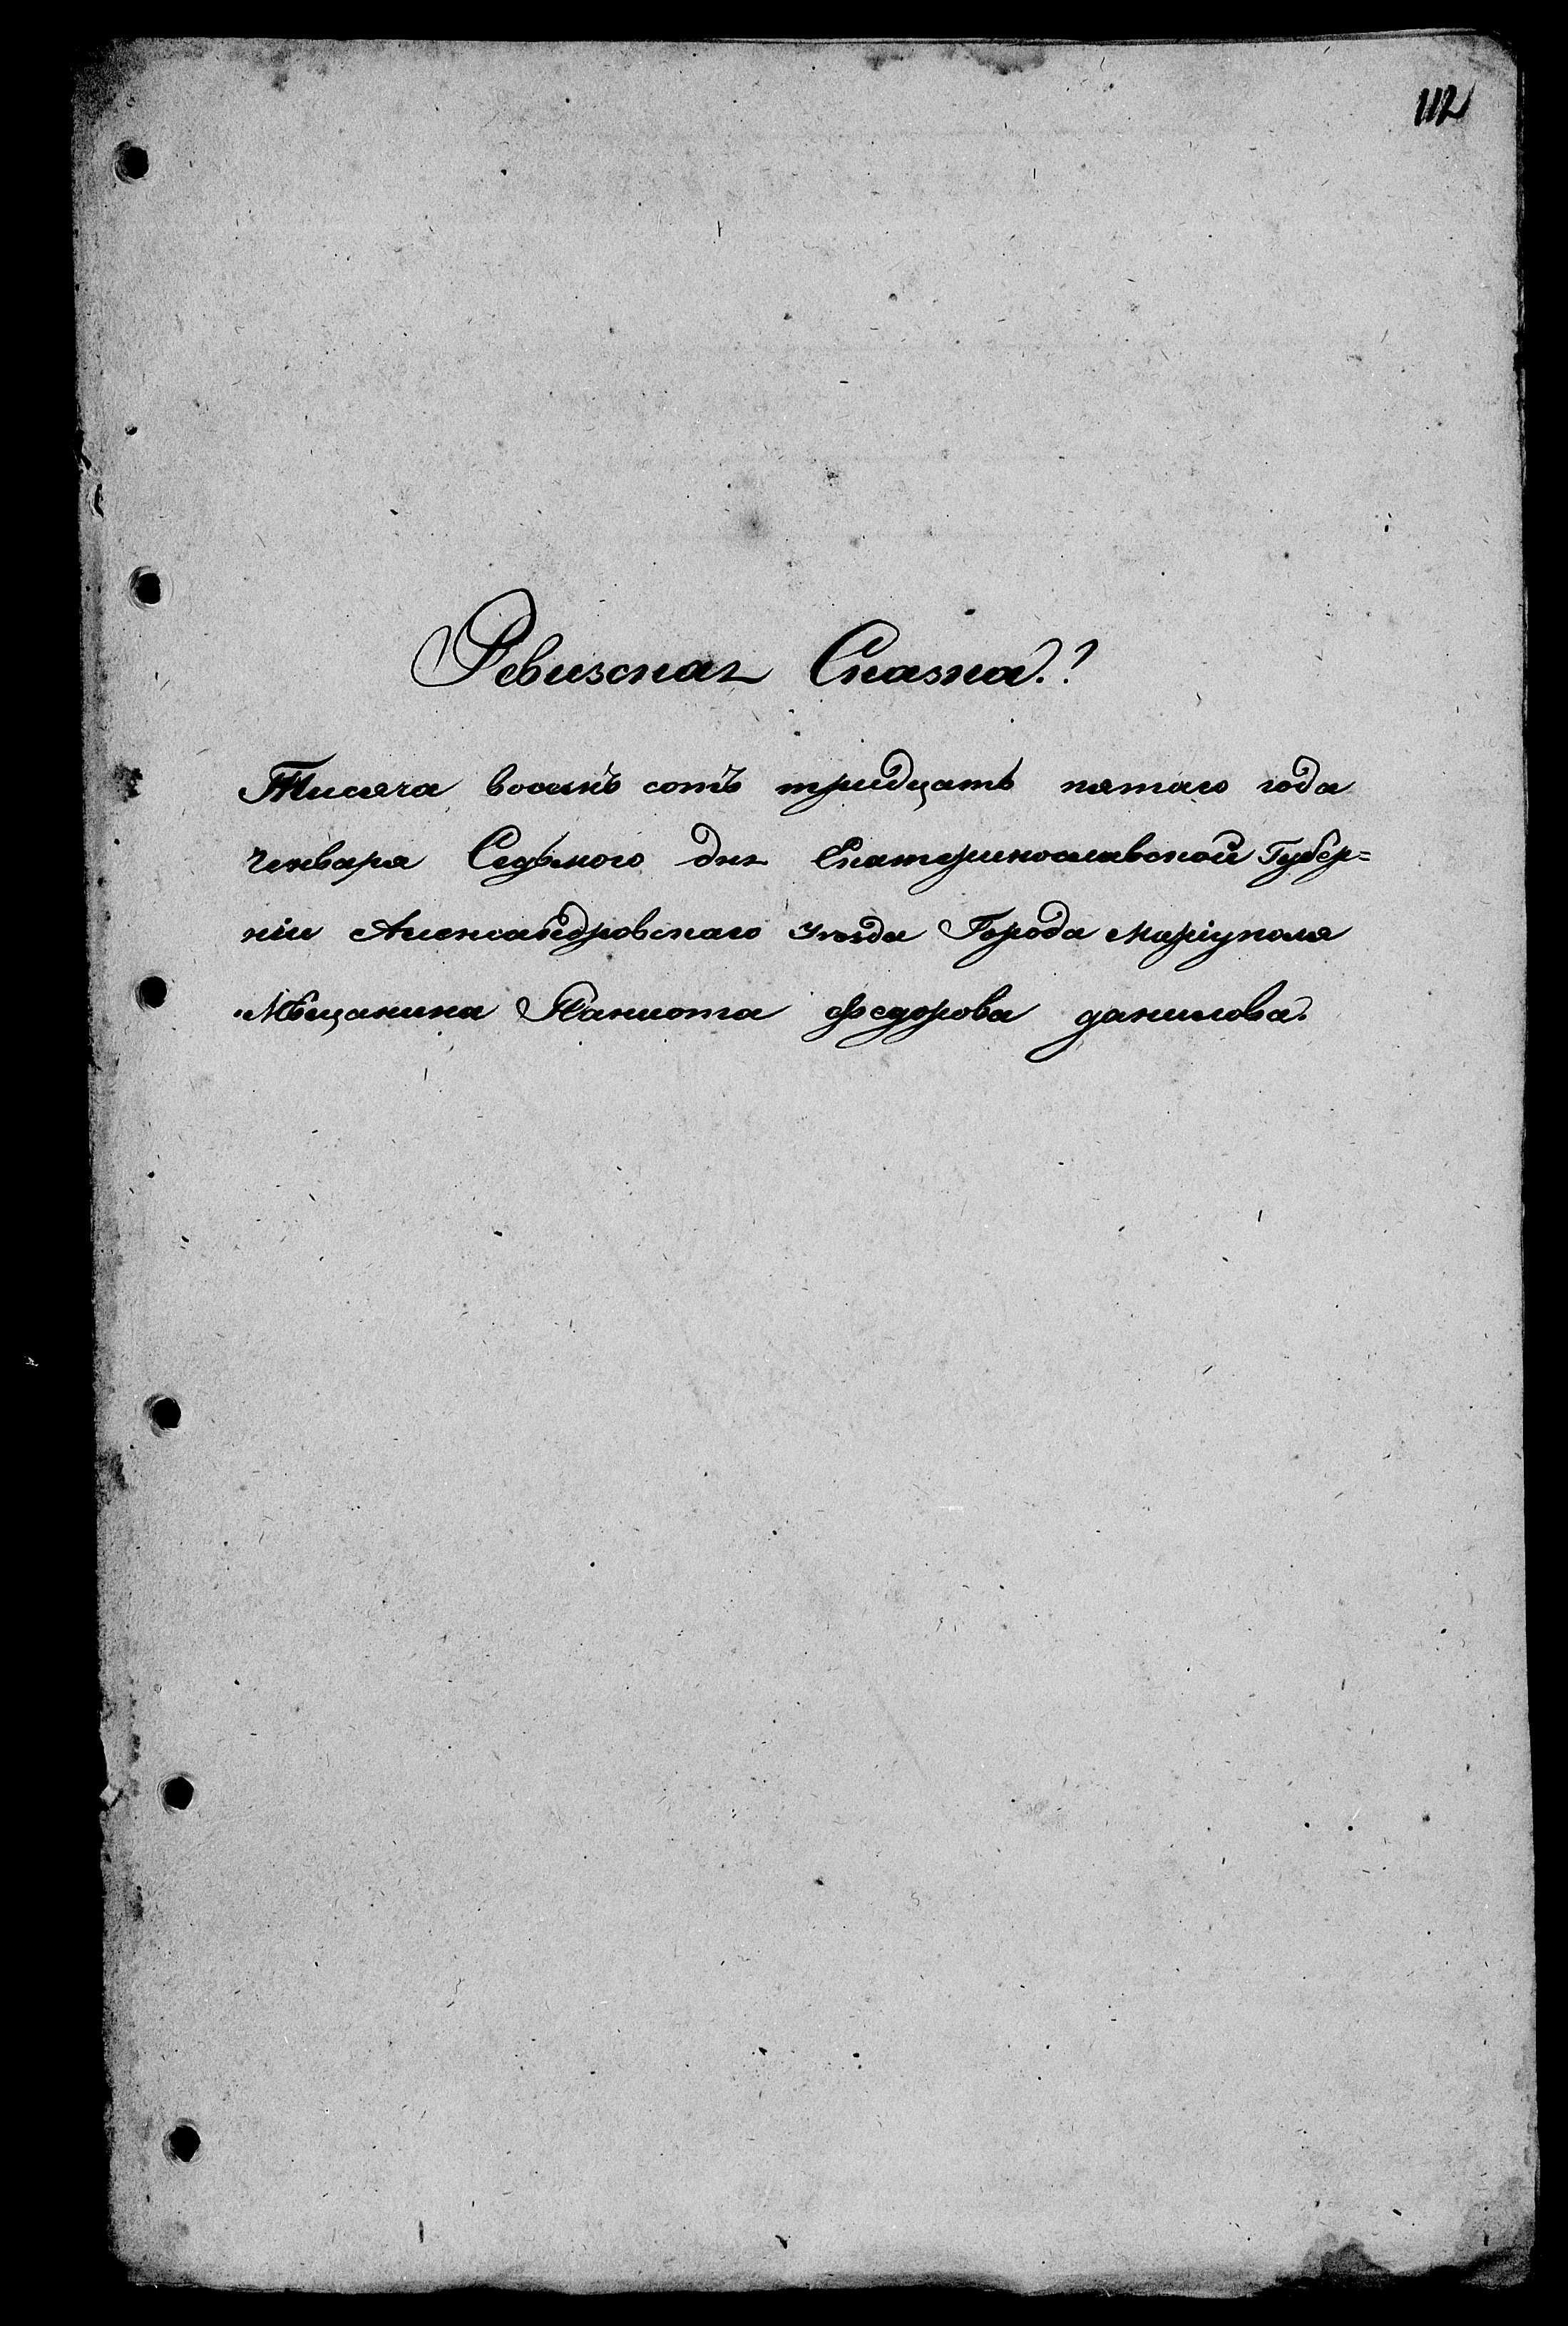 112
Ревизская Сказка.
Тисяча восемь сотъ тридцать пятаго года
Генваря Седьмого дня Екатеринославской Губер=
ніи Александровскаго Уезда Города Маріуполя
Мѣщанина Паниота Федорова Данилова.